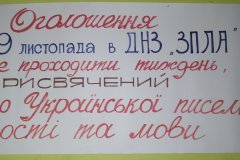 Оголошення
9 листопада в ДНЗ „ЗПЛА"
проходити тиждень,
РИСВЯЧЕНИЙ
Української писем
ості та мови